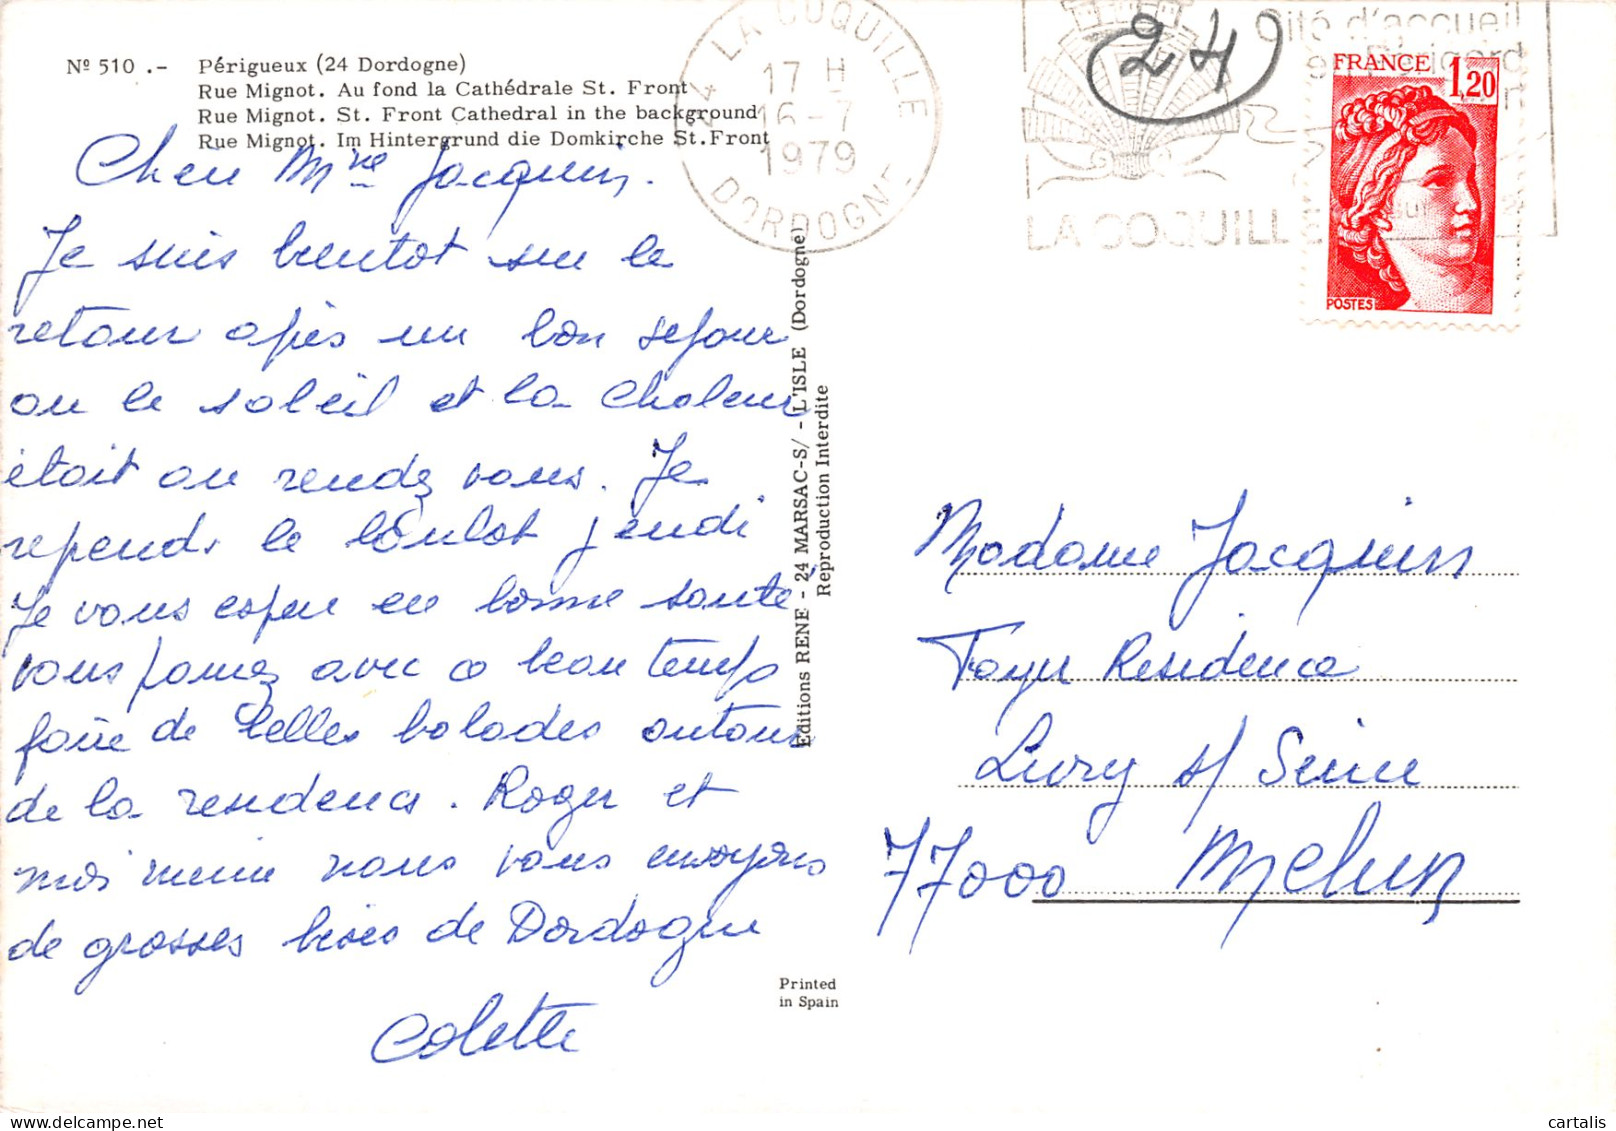 Nº 510 .- Périgueux (24 Dordogne)
Rue Mignot. Au fond la Cathédrale St. Front
Rue Mignot. St. Front Cathedral in the background
Rue Mignot. Im Hintergrund die Domkirche St. Front
Mme Jacquin.
Je suis bientot sur le
retour après un bon sejour
ou le soleil et la chaleur
était au rendez vous. Je
reprends le boulot jeudi
Je vous espere en bonne santé
vous pouvez avec ce beau temps
faire de belles balades autour
de la residence. Roger et
moi meme nous vous envoyons
de grosses bises de Dordogne
Colette
Editions RENE - 24 MARSAC-S/ - L'ISLE (Dordogne)
Reproduction Interdite
Printed
in Spain
24 LA COQUILLE
17 H
16-7
1979
DORDOGNE
24
Cité d'accueil
en Périgord
LA COQUILLE
FRANCE 1,20
POSTES
Madame Jacquin
Foyer Residence
Livry s/ Seine
77000 Melun
cartalis